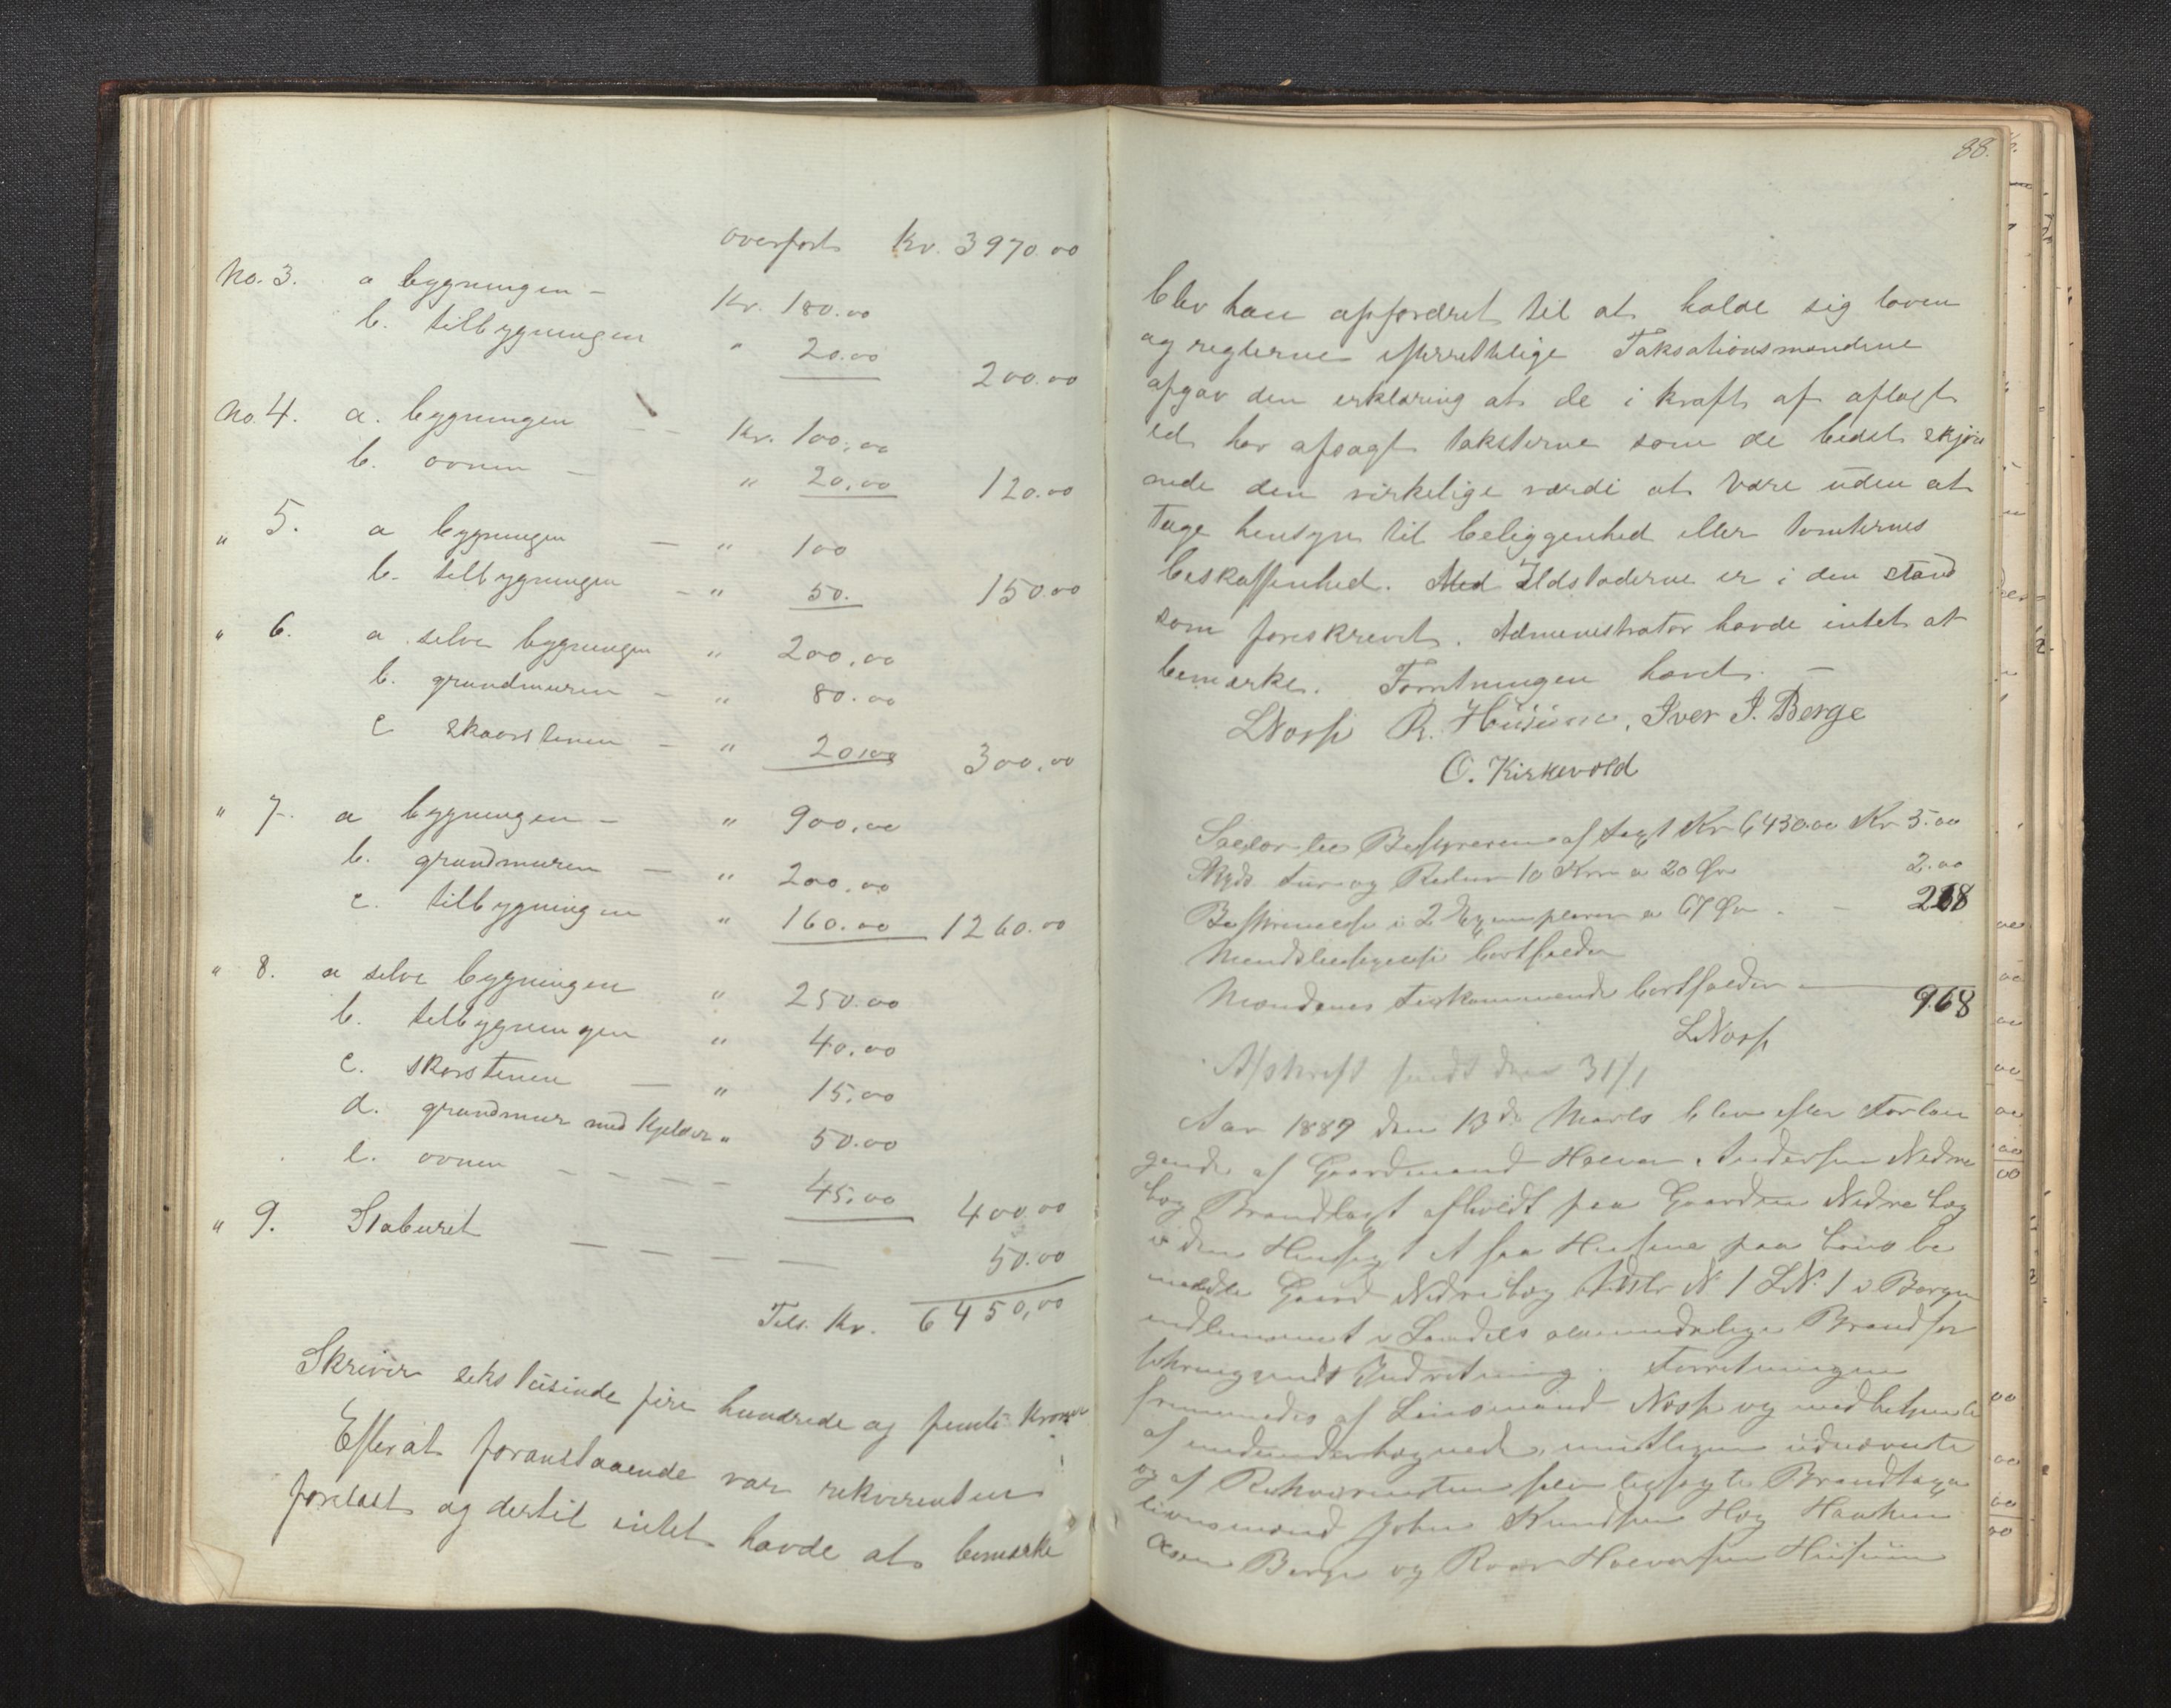 overført Kr. 3970.00
No. 3. a bygningen – Kr. 180.00
b. tilbygningen " 20.00 200.00
No. 4. a. bygningen – – Kr. 100,00
b. ovnen – " 20,00 120.00
" 5. a bygningen – " 100
b. tilbygningen – " 50. 150.00
" 6. a selve bygningen " 200,00
b. grundmuren – " 80.00
c skaarstenen – " 20,00 300,00
" 7. a bygningen – " 900,00
b. grundmuren – " 200,00
c. tilbygningen " 160.00 1260.00
" 8. a selve bygningen " 250.00
b. tilbygningen " 40,00
c. skorstenen – " 15,00
d. grundmur med Kjelder " 50.00
e. ovnen – – – – 45,00 400.00
" 9. Staburet – – – – 50.00
Tils. Kr. 6450,00
Skriver seks tusinde fire hundrede og femti Kroner
Efterat foranstaaende var rekvirenten
forelæst og dertil intet havde at bemærke
88.
blev han opfordret til at holde sig loven
og reglerne efterrettelige Taksationsmændene
afgav den erklæring at de i kraft af aflagt
ed har afsagt taksterne som de bedst skjøn
nede den virkelige værdi at være uden at
tage hensyn til beliggenhed eller tomternes
beskaffenhed. Med Ildstæderne er i den stand
som foreskrevet. Administrator havde intet at
bemærke. Forretningen hævet. –
LNosse R. Húsúm, Iver I. Berge
O. Kirkevold
Salær til Bestyreren af taxt Kr 6430.00 Kr 5.00
Skyds tur og Retur 10 Km a 20 Ør 2.00
Beskrivelse i 2 Exemplarer a 67 Ør. – 268
bortfalder
Mændenes tilkommende bortfalder – 968
LNosse
Afskrift sendt den 31/1
Aar 1889 den 13de Marts blev efter Forlan
gende af Gaardmand Halvor Andersen Nedre
Eeg Brandtaxt afholdt paa Gaarden Nedre Eeg
i den Hensigt at faa Husene paa hans be
meldte Gaard Nedre Eeg Matr N. 1 LN. 1 i Borgen
indlemmet i Landets almindelige Brandfor
sikringsindretning. Forretningen
fremmedes af Lensmand Nosse og med
af undertegnede, udnævnte
og af Rekvirenten selv tilsagte Brandtaxa
tionsmænd John Knudsen Hæg Haaken
Olsen Berge og Roar Halvorsen Húsúm